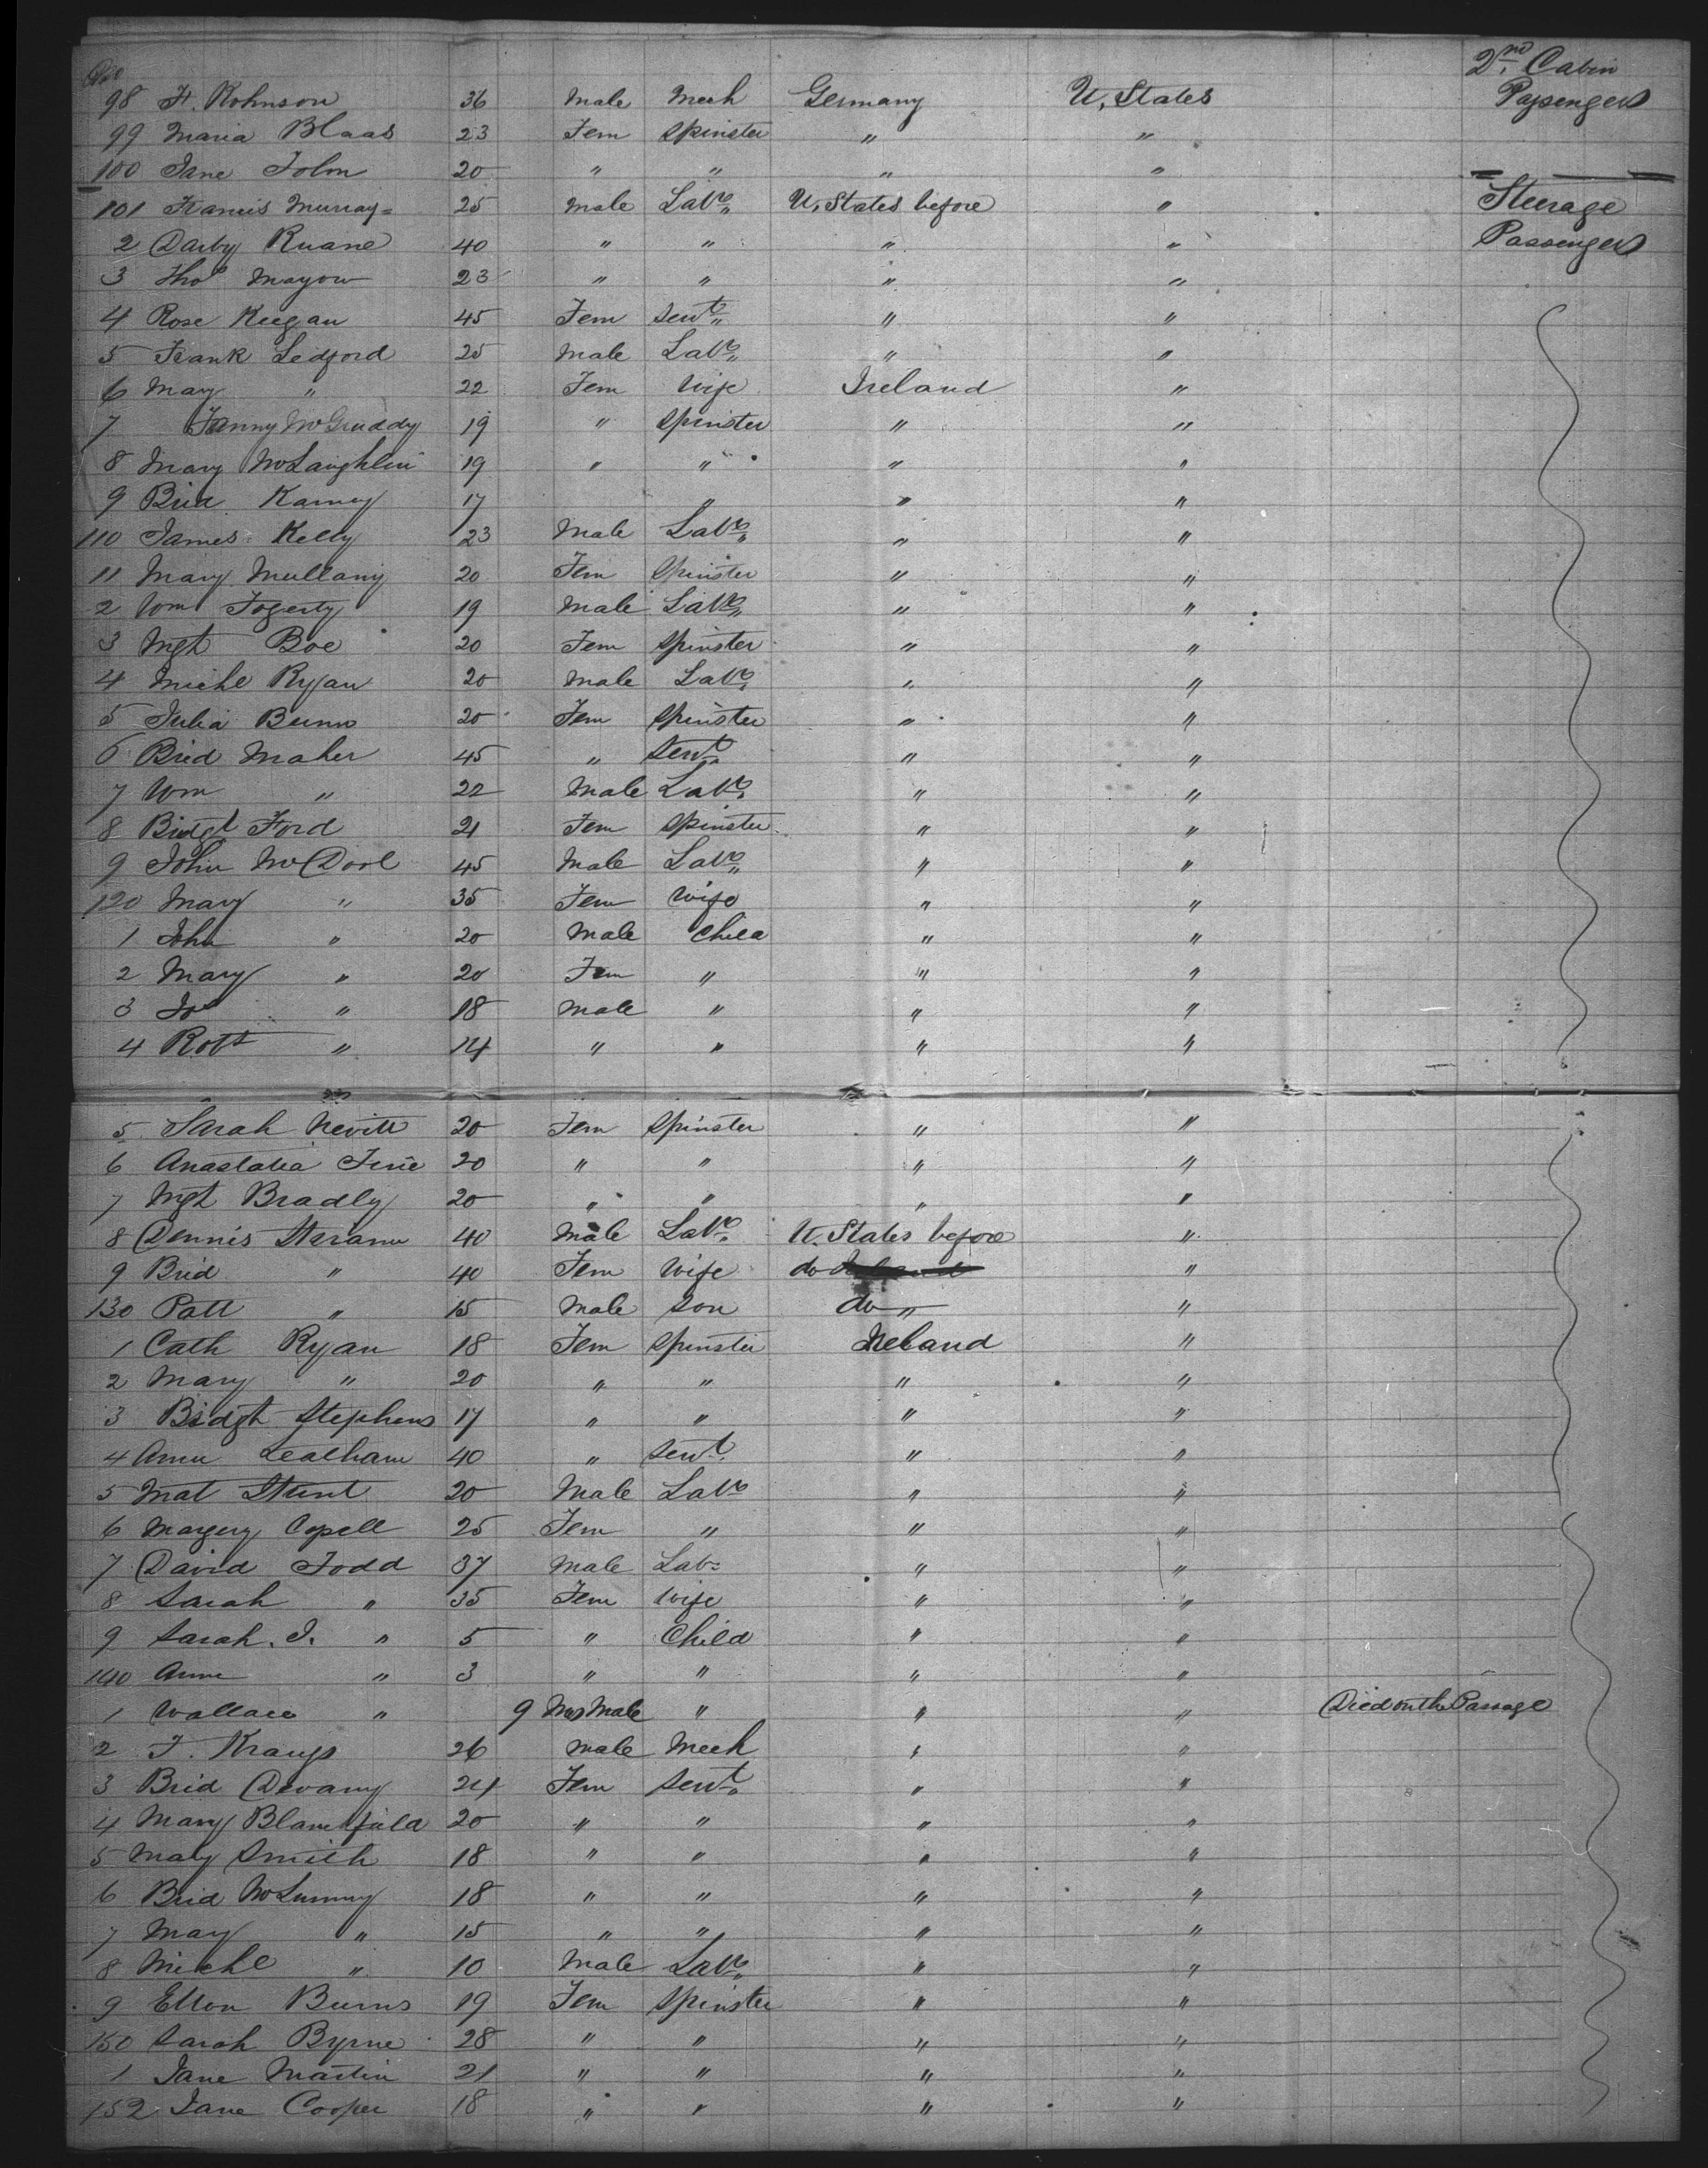 No 2nd Cabin
98 H. Rohnson 36 Male Mech Germany U. States Passengers
99 Maria Blaas 23 Fem Spinster " "
100 Jane Tolm 20 " " " "
101 Francis Murray 25 Male Labr U. States before " Steerage
2 Darby Ruane 40 " " " " Passengers
3 Thos Mayow 23 " " " "
4 Rose Keegan 45 Fem Servt " "
5 Frank Ledford 25 Male Labr " "
6 Mary " 22 Fem Wife Ireland "
7 Fanny McGruddy 19 " Spinster " "
8 Mary McLaughlin 19 " " " "
9 Brid Kamey 17 " " "
110 James Kelly 23 Male Labr " "
11 Mary Mullany 20 Fem Spinster " "
2 Wm Fogerty 19 Male Labr " "
3 Mgt Boe 20 Fem Spinster " "
4 Michl Ryan 20 Male Labr " "
5 Julia Burns 20 Fem Spinster " "
6 Brid Maher 45 " Servt " "
7 Wm " 22 Male Labr " "
8 Bridgt Ford 21 Fem Spinster " "
9 John McDool 45 Male Labr " "
120 Mary " 35 Fem Wife " "
1 John " 20 Male Child " "
2 Mary " 20 Fem " " "
3 Jos " 18 Male " " "
4 Robt " 14 " " " "
5 Sarah Nevitt 20 Fem Spinster " "
6 Anastatia Fine 20 " " " "
7 Mgt Bradly 20 " " " "
8 Dennis 40 Male Labr U. States before "
9 Brid " 40 Fem Wife do "
130 Patt " 15 Male Son do " "
1 Cath Ryan 18 Fem Spinster Ireland "
2 Mary " 20 " " " "
3 Bridgt Stephens 17 " " " "
4 Ann Lealham 40 " Servt " "
5 Mat Stunt 20 Male Labr " "
6 Margery Copell 25 Fem " " "
7 David Todd 37 Male Labr " "
8 Sarah " 35 Fem Wife " "
9 Sarah. J. " 5 " Child " "
140 Anne " 3 " " " "
1 Wallace " 9 Mos Male " " " Died on the Passage
2 F. Kraups 26 Male Mech " "
3 Brid Devany 24 Fem Servt " "
4 Mary Blamefield 20 " " " "
5 Maty Smith 18 " " " "
6 Brid McLummy 18 " " " "
7 May " 15 " " " "
8 Michl " 10 Male Labr " "
9 Ellen Burns 19 Fem Spinster " "
150 Sarah Byrne 28 " " " "
1 Jane Martin 21 " " " "
152 Jane Cooper 18 " " " "